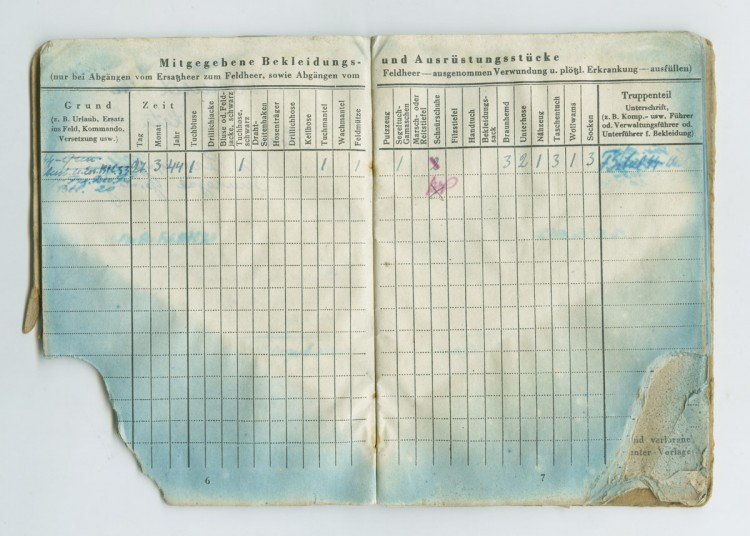 Mitgegebene Bekleidungs-
(nur bei Abgängen vom Ersatzheer zum Feldheer, sowie Abgängen vom
Grund
(z. B. Urlaub, Ersatz
im Feld, Kommando,
Versetzung usw.)
Zeit
Tag
Monat
Jahr
Tuchbluse
Drillichjacke
Bluse od. Feld-
jacke, schwarz
Tuchhose,
schwarz
Draht-
Seitenhaken
Hosenträger
Drillichhose
Keilhose
Tuchmantel
Wachmantel
Feldmütze
3 44 1 1 1 1
6
und Ausrüstungsstücke
Feldheer — ausgenommen Verwundung u. plötzl. Erkrankung — ausfüllen)
Putzzeug
Segeltuch-
Gamaschen
Marsch- oder
Reitstiefel
Schnürschuhe
Filzstiefel
Handtuch
Bekleidungs-
sack
Braunhemd
Unterhose
Nähzeug
Taschentuch
Wollwams
Socken
Truppenteil
Unterschrift,
(z. B. Komp.- usw. Führer
od. Verwaltungsführer od.
Unterführer f. Bekleidung)
1 3 2 1 3 1 3
7
nd verlorene
unter-Vorlage